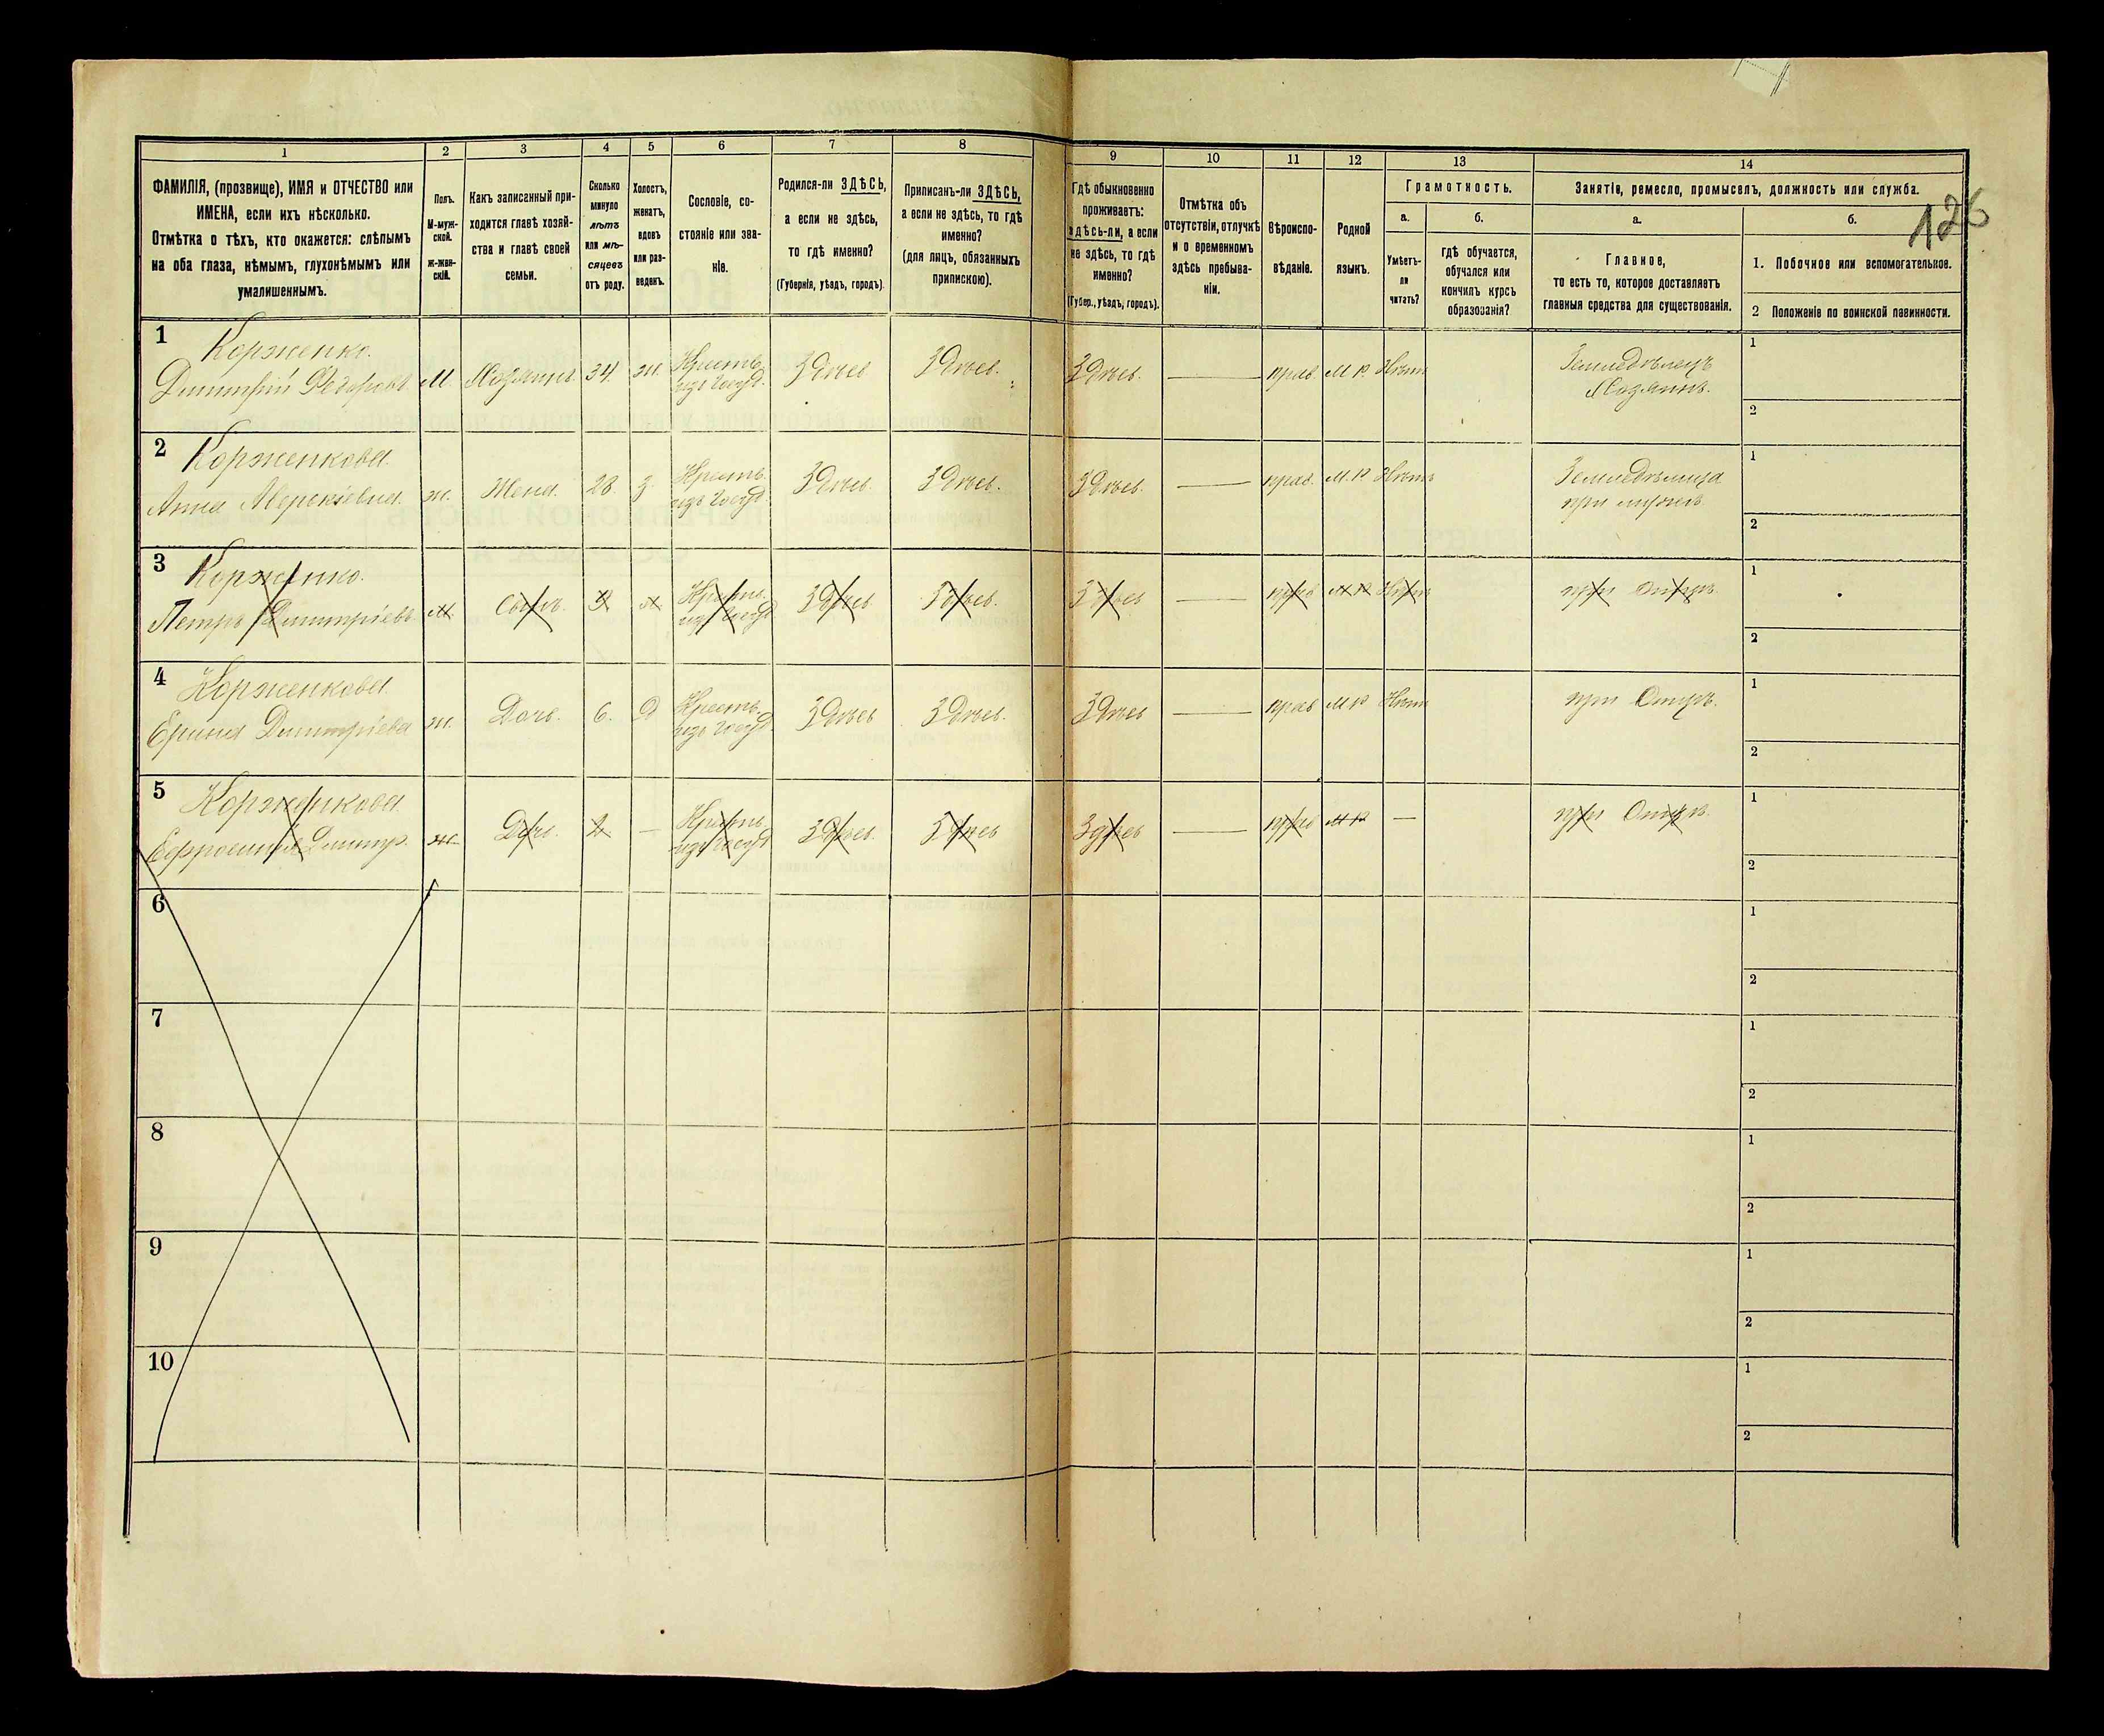 126
1 2 3 4 5 6 7 8 9 10 11 12 13 14
ФАМИЛІЯ, (прозвище), ИМЯ и ОТЧЕСТВО или
ИМЕНА, если ихъ нѣсколько.
Отмѣтка о тѣхъ, кто окажется: слѣпымъ
на оба глаза, нѣмымъ, глухонѣмымъ или
умалишеннымъ.
Полъ.
М-муж-
ской.
ж-жен-
скій.
Какъ записанный при-
ходится главѣ хозяй-
ства и главѣ своей
семьи.
Сколько
минуло
лѣтъ
или мѣ-
сяцевъ
отъ роду.
Холостъ,
женатъ,
вдовъ
или раз-
веденъ.
Сословіе, со-
стояніе или зва-
ніе.
Родился-ли ЗДѢСЬ,
а если не здѣсь,
то гдѣ именно?
(Губернія, уѣздъ, городъ).
Приписанъ-ли ЗДѢСЬ,
а если не здѣсь, то гдѣ
именно?
(для лицъ, обязанныхъ
припискою).
Гдѣ обыкновенно
проживаетъ:
здѣсь-ли, а если
не здѣсь, то гдѣ
именно?
(Губер., уѣздъ, городъ).
Отмѣтка объ
отсутствіи, отлучкѣ
и о временномъ
здѣсь пребыва-
ніи.
Вѣроиспо-
вѣданіе.
Родной
языкъ.
Грамотность.
а.
Умѣетъ-
ли
читать?
б.
гдѣ обучается,
обучался или
кончилъ курсъ
образованія?
Занятіе, ремесло, промыселъ, должность или служба.
а.
Главное,
то есть то, которое доставляетъ
главныя средства для существованія.
б.
1. Побочное или вспомогательное.
2 Положеніе по воинской повинности.
1
Корженко.
Дмитрій Ѳедоровъ М. Хозяинъ 34. ж. Крестья. изъ Госуд. Здѣсь Здѣсь. Здѣсь. прав. М. Р. Нѣтъ
Земледѣлецъ
Хозяинъ.
1
2
2
Корженкова.
Анна Аверкіевна. ж. Жена. 28. з. Крестья. изъ Госуд. Здѣсь. Здѣсь. Здѣсь. прав. М. Р. Нѣтъ
Земледѣлица
при мужѣ
1
2
3
Корженко.
Петръ Дмитріевъ М. Сынъ. Здѣсь Здѣсь. Здѣсь прав М. Р. Нѣтъ при Отцѣ.
1
2
4
Корженкова.
Ерина Дмитріева ж. Дочь. 6. Д Крестья. изъ Госуд. Здѣсь Здѣсь. Здѣсь прав М Р Нѣтъ при Отцѣ.
1
2
5
Корженкова
Ефросинія Дмитр. ж. Дочь. 2. Крестья. изъ Госуд Здѣсь. Здѣсь Здѣсь прав М Р при Отцѣ.
1
2
6
1
2
7
1
2
8
1
2
9
1
2
10
1
2